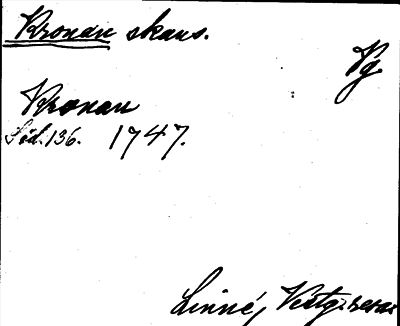 Kronan skans.
Vg
Kronan
Sid. 136. 1747.
Linné, Västg. resa